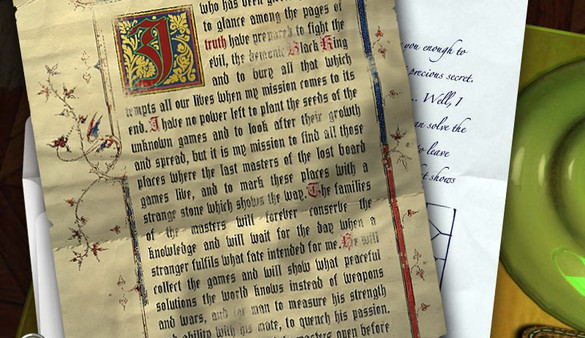 I
who has been
to glance among the pages of
truth have prepared to fight the
evil, the demonic Black King
and to bury all that which
tempts all our lives when my mission comes to its
end. I have no power left to plant the seeds of the
unknown games and to look after their growth
and spread, but it is my mission to find all those
places where the last masters of the lost board
games live, and to mark these places with a
strange stone which shows the way. The families
of the masters will forever conserve the
knowledge and will wait for the day when a
stranger fulfils what fate intended for me. He will
collect the games and will show what peaceful
solutions the world knows instead of weapons
and wars, and for man to measure his strength
and ability with his mate, to quench his passion.
masters open before
you enough to
precious secret.
... Well, I
can solve the
to leave
shows